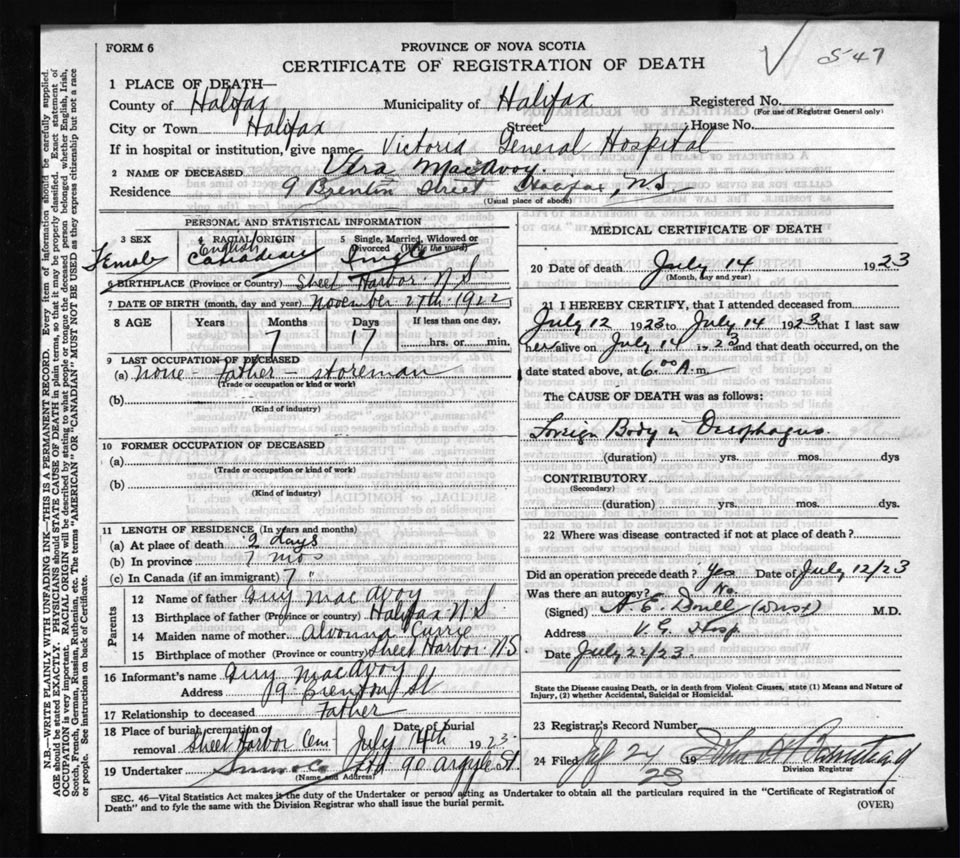 FORM 6
PROVINCE OF NOVA SCOTIA
547
CERTIFICATE OF REGISTRATION OF DEATH
1 PLACE OF DEATH—
County of Halifax Municipality of Halifax Registered No.
(For use of Registrar General only)
City or Town Halifax Street House No.
If in hospital or institution, give name Victoria General Hospital
2 NAME OF DECEASED Vera MacAvoy
Residence 9 Brenton Street Halifax, N.S.
(Usual place of abode)
PERSONAL AND STATISTICAL INFORMATION
3 SEX 4 RACIAL ORIGIN 5 Single, Married, Widowed or Divorced (Write the word)
Female English Canadian Single
6 BIRTHPLACE (Province or Country) Sheet Harbor N.S
7 DATE OF BIRTH (month, day and year) November 27th 1922
8 AGE Years Months Days If less than one day,
7 17 hrs. or min.
9 LAST OCCUPATION OF DECEASED
(a) none - Father - storeman
(Trade or occupation or kind or work)
(b)
(Kind of industry)
10 FORMER OCCUPATION OF DECEASED
(a)
(Trade or occupation or kind of work)
(b)
(Kind of industry)
11 LENGTH OF RESIDENCE (In years and months)
(a) At place of death 2 days
(b) In province 7 mos
(c) In Canada (if an immigrant) 7 "
Parents
12 Name of father Guy MacAvoy
13 Birthplace of father (Province or country) Halifax N.S
14 Maiden name of mother Currie
15 Birthplace of mother (Province or country) Sheet Harbor N.S
16 Informant's name Guy MacAvoy
Address 9 Brenton St
17 Relationship to deceased Father
18 Place of burial, cremation or removal Sheet Harbor Cem Date of burial July 14th 1923
19 Undertaker Snow & Co Ltd 90 Argyle St.
(Name and Address)
MEDICAL CERTIFICATE OF DEATH
20 Date of death July 14 1923
(Month, day and year)
21 I HEREBY CERTIFY, that I attended deceased from
July 12 1923 to July 14 1923 that I last saw
her alive on July 14 1923 and that death occurred, on the
date stated above, at 6.00 A.m.
The CAUSE OF DEATH was as follows:
Foreign Body in Oesophagus.
(duration) yrs. mos. dys
CONTRIBUTORY
(Secondary)
(duration) yrs. mos. dys.
22 Where was disease contracted if not at place of death?
Did an operation precede death? Yes Date of July 12/23
Was there an autopsy? No
(Signed) A. E. M.D.
Address V. G. Hosp
Date July 22/23.
State the Disease causing Death, or in death from Violent Causes, state (1) Means and Nature of Injury, (2) whether Accidental, Suicidal or Homicidal.
23 Registrar's Record Number
24 Filed 24 19 23 John
Division Registrar
SEC. 46—Vital Statistics Act makes it the duty of the Undertaker or person acting as Undertaker to obtain all the particulars required in the "Certificate of Registration of
Death" and to fyle the same with the Division Registrar who shall issue the burial permit.
(OVER)
N.B.—WRITE PLAINLY WITH UNFADING INK—THIS IS A PERMANENT RECORD. Every item of information should be carefully supplied.
AGE should be stated EXACTLY. PHYSICIANS should STATE CAUSE OF DEATH in plain terms, so that it may be properly classified. Exact statement of
OCCUPATION is very important. RACIAL ORIGIN will be described by stating to what people or tongue the deceased person belonged whether English, Irish,
Scotch, French, German, Russian, Ruthenian, etc. The terms "AMERICAN" OR "CANADIAN" MUST NOT BE USED as they express citizenship but not a race
or people. See instructions on back of Certificate.